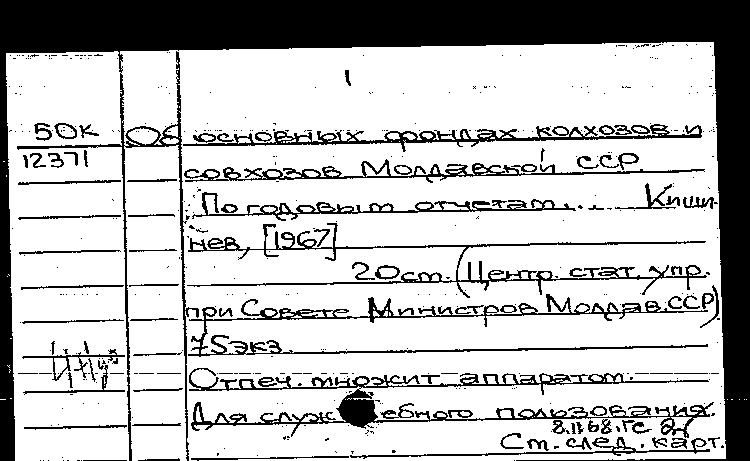 1
50К Об основных фондах колхозов и
12371
совхозов Молдавской ССР.
По годовым отчетам... Киши-
нев, [1967]
20 ст. (Центр. стат. упр.
при Совете Министров Молдав. ССР)
75 экз.
Отпеч. множит. аппаратом.
Для служебного пользования.
См. след. карт.